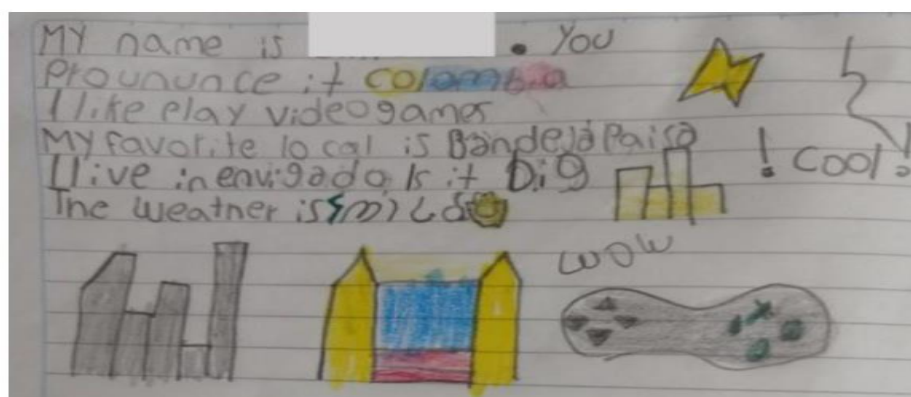 MY name is . You
Prounounce it colombia
I like play videogames
My favorite local is Bandeja Paisa
I live in envigado Is it Big ! cool!
The weather is mild
wow